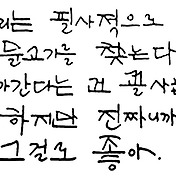 리는 필사적으로
들고가를 찾는다
아간다는 건 꼴사
하지만 진짜니까
그걸로 좋아.